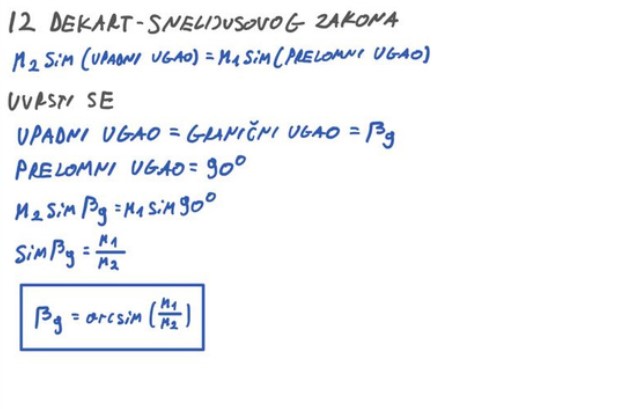 IZ DEKART-SNELIJUSOVOG ZAKONA
n₂ sin (UPADNI UGAO) = n₁ sin (PRELOMNI UGAO)
UVRSTI SE
UPADNI UGAO = GRANIČNI UGAO = βg
PRELOMNI UGAO = 90°
n₂ sin βg = n₁ sin 90°
sin βg = n₁/n₂
βg = arcsin (n₁/n₂)